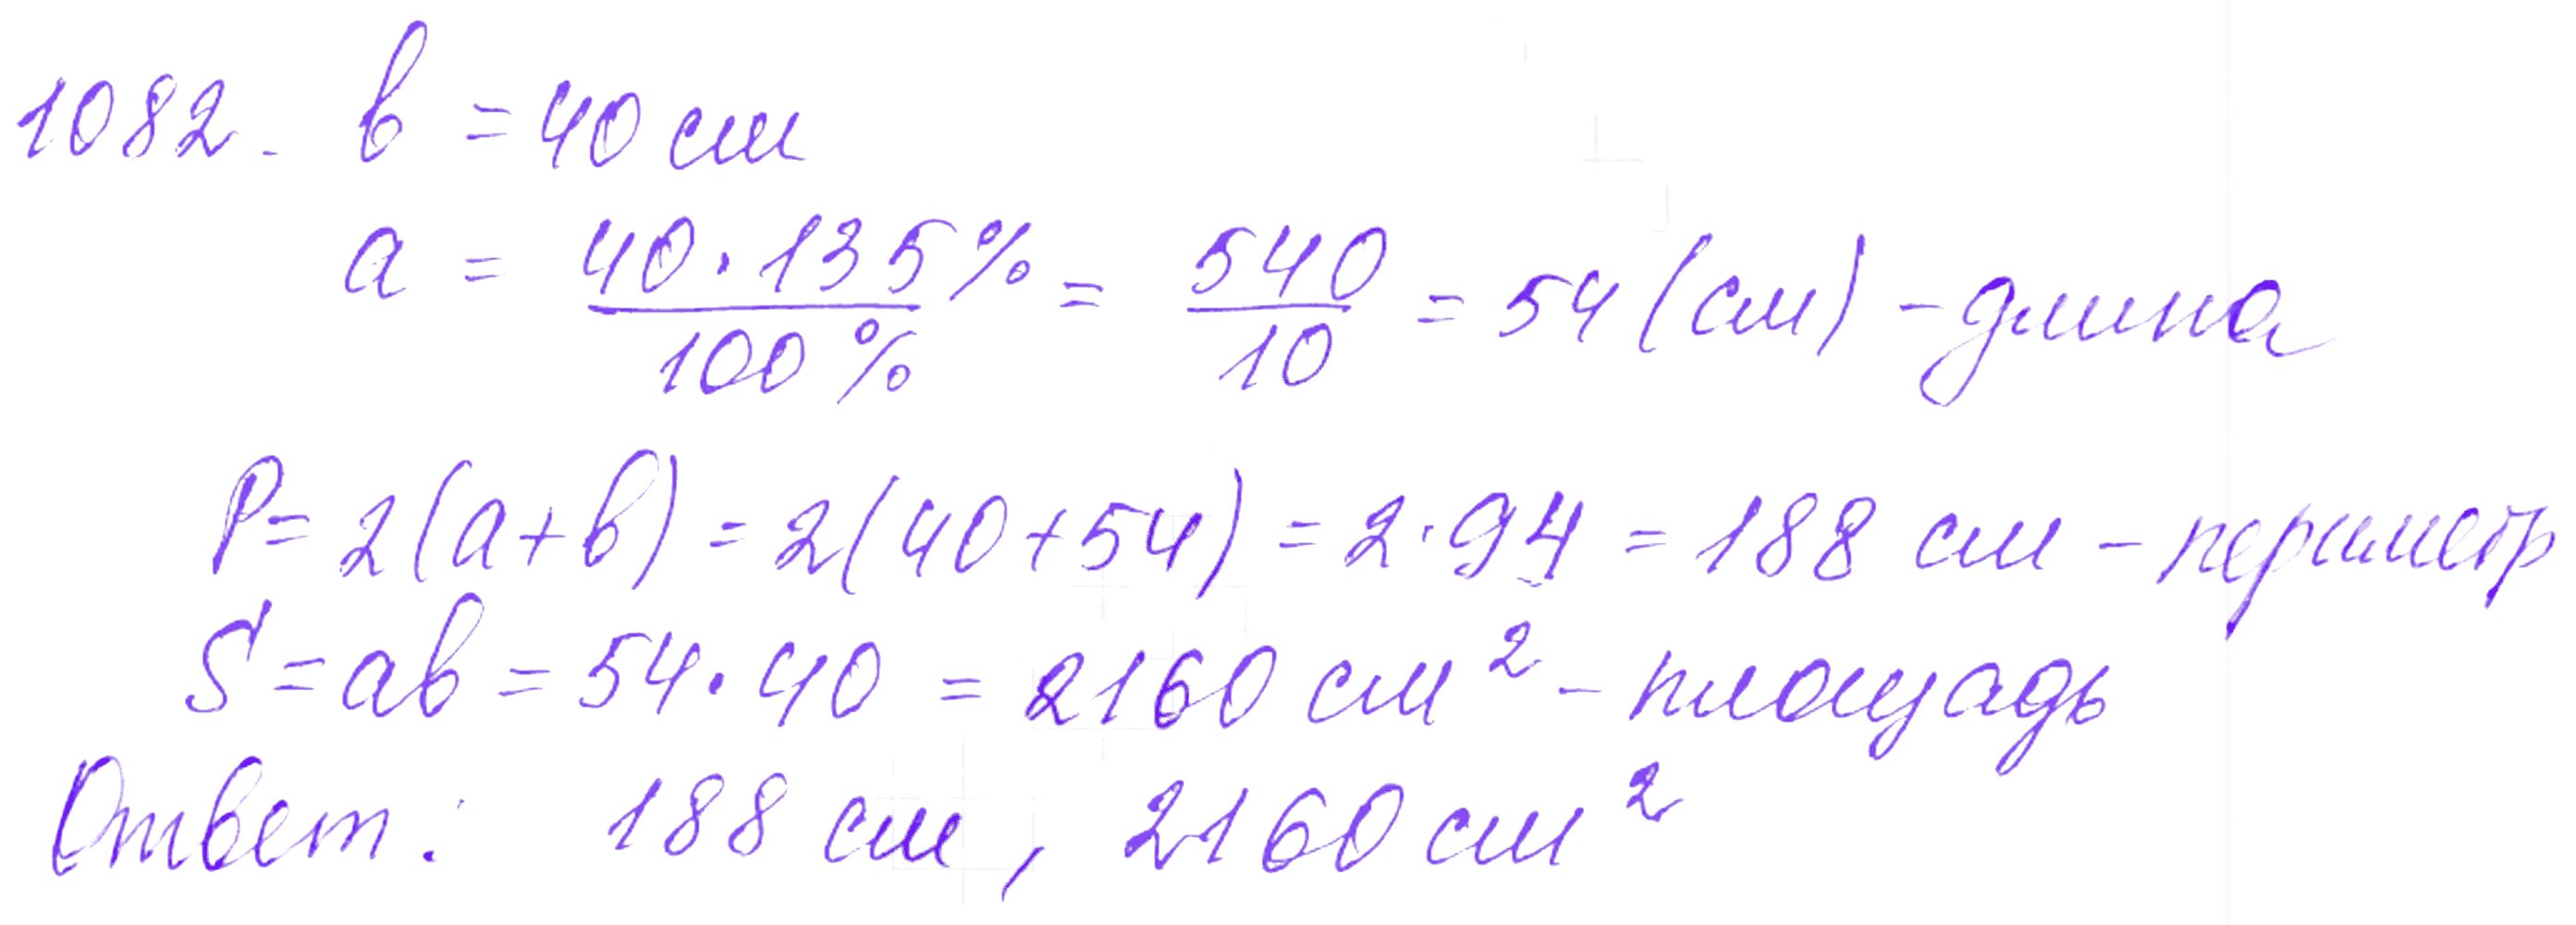 1082. b = 40 см
a = 40·135% / 100% = 540 / 10 = 54 (см) - длина
P = 2(a+b) = 2(40+54) = 2·94 = 188 см - периметр
S = ab = 54·40 = 2160 см² - площадь
Ответ: 188 см, 2160 см²